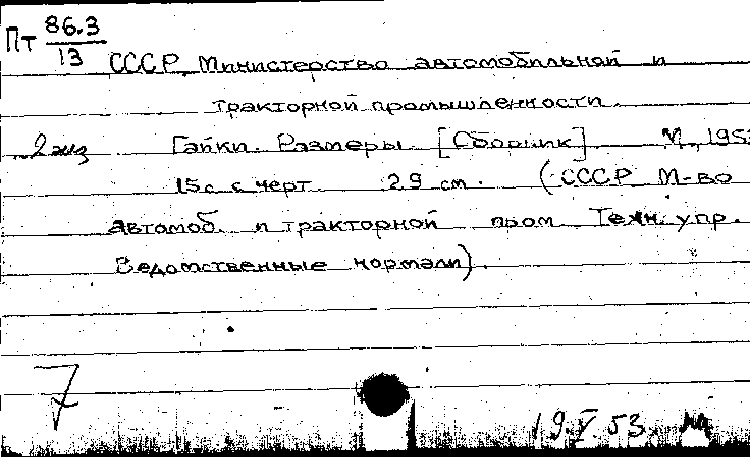 Пт 86.3
13
СССР. Министерство автомобильной и
тракторной промышленности.
2 экз
Гайки. Размеры. [Сборник] М., 195
15с с черт. 29 см. (СССР М-во
Автомоб. и тракторной пром Техн. упр.
Ведомственные нормали).
7
19.V.53.